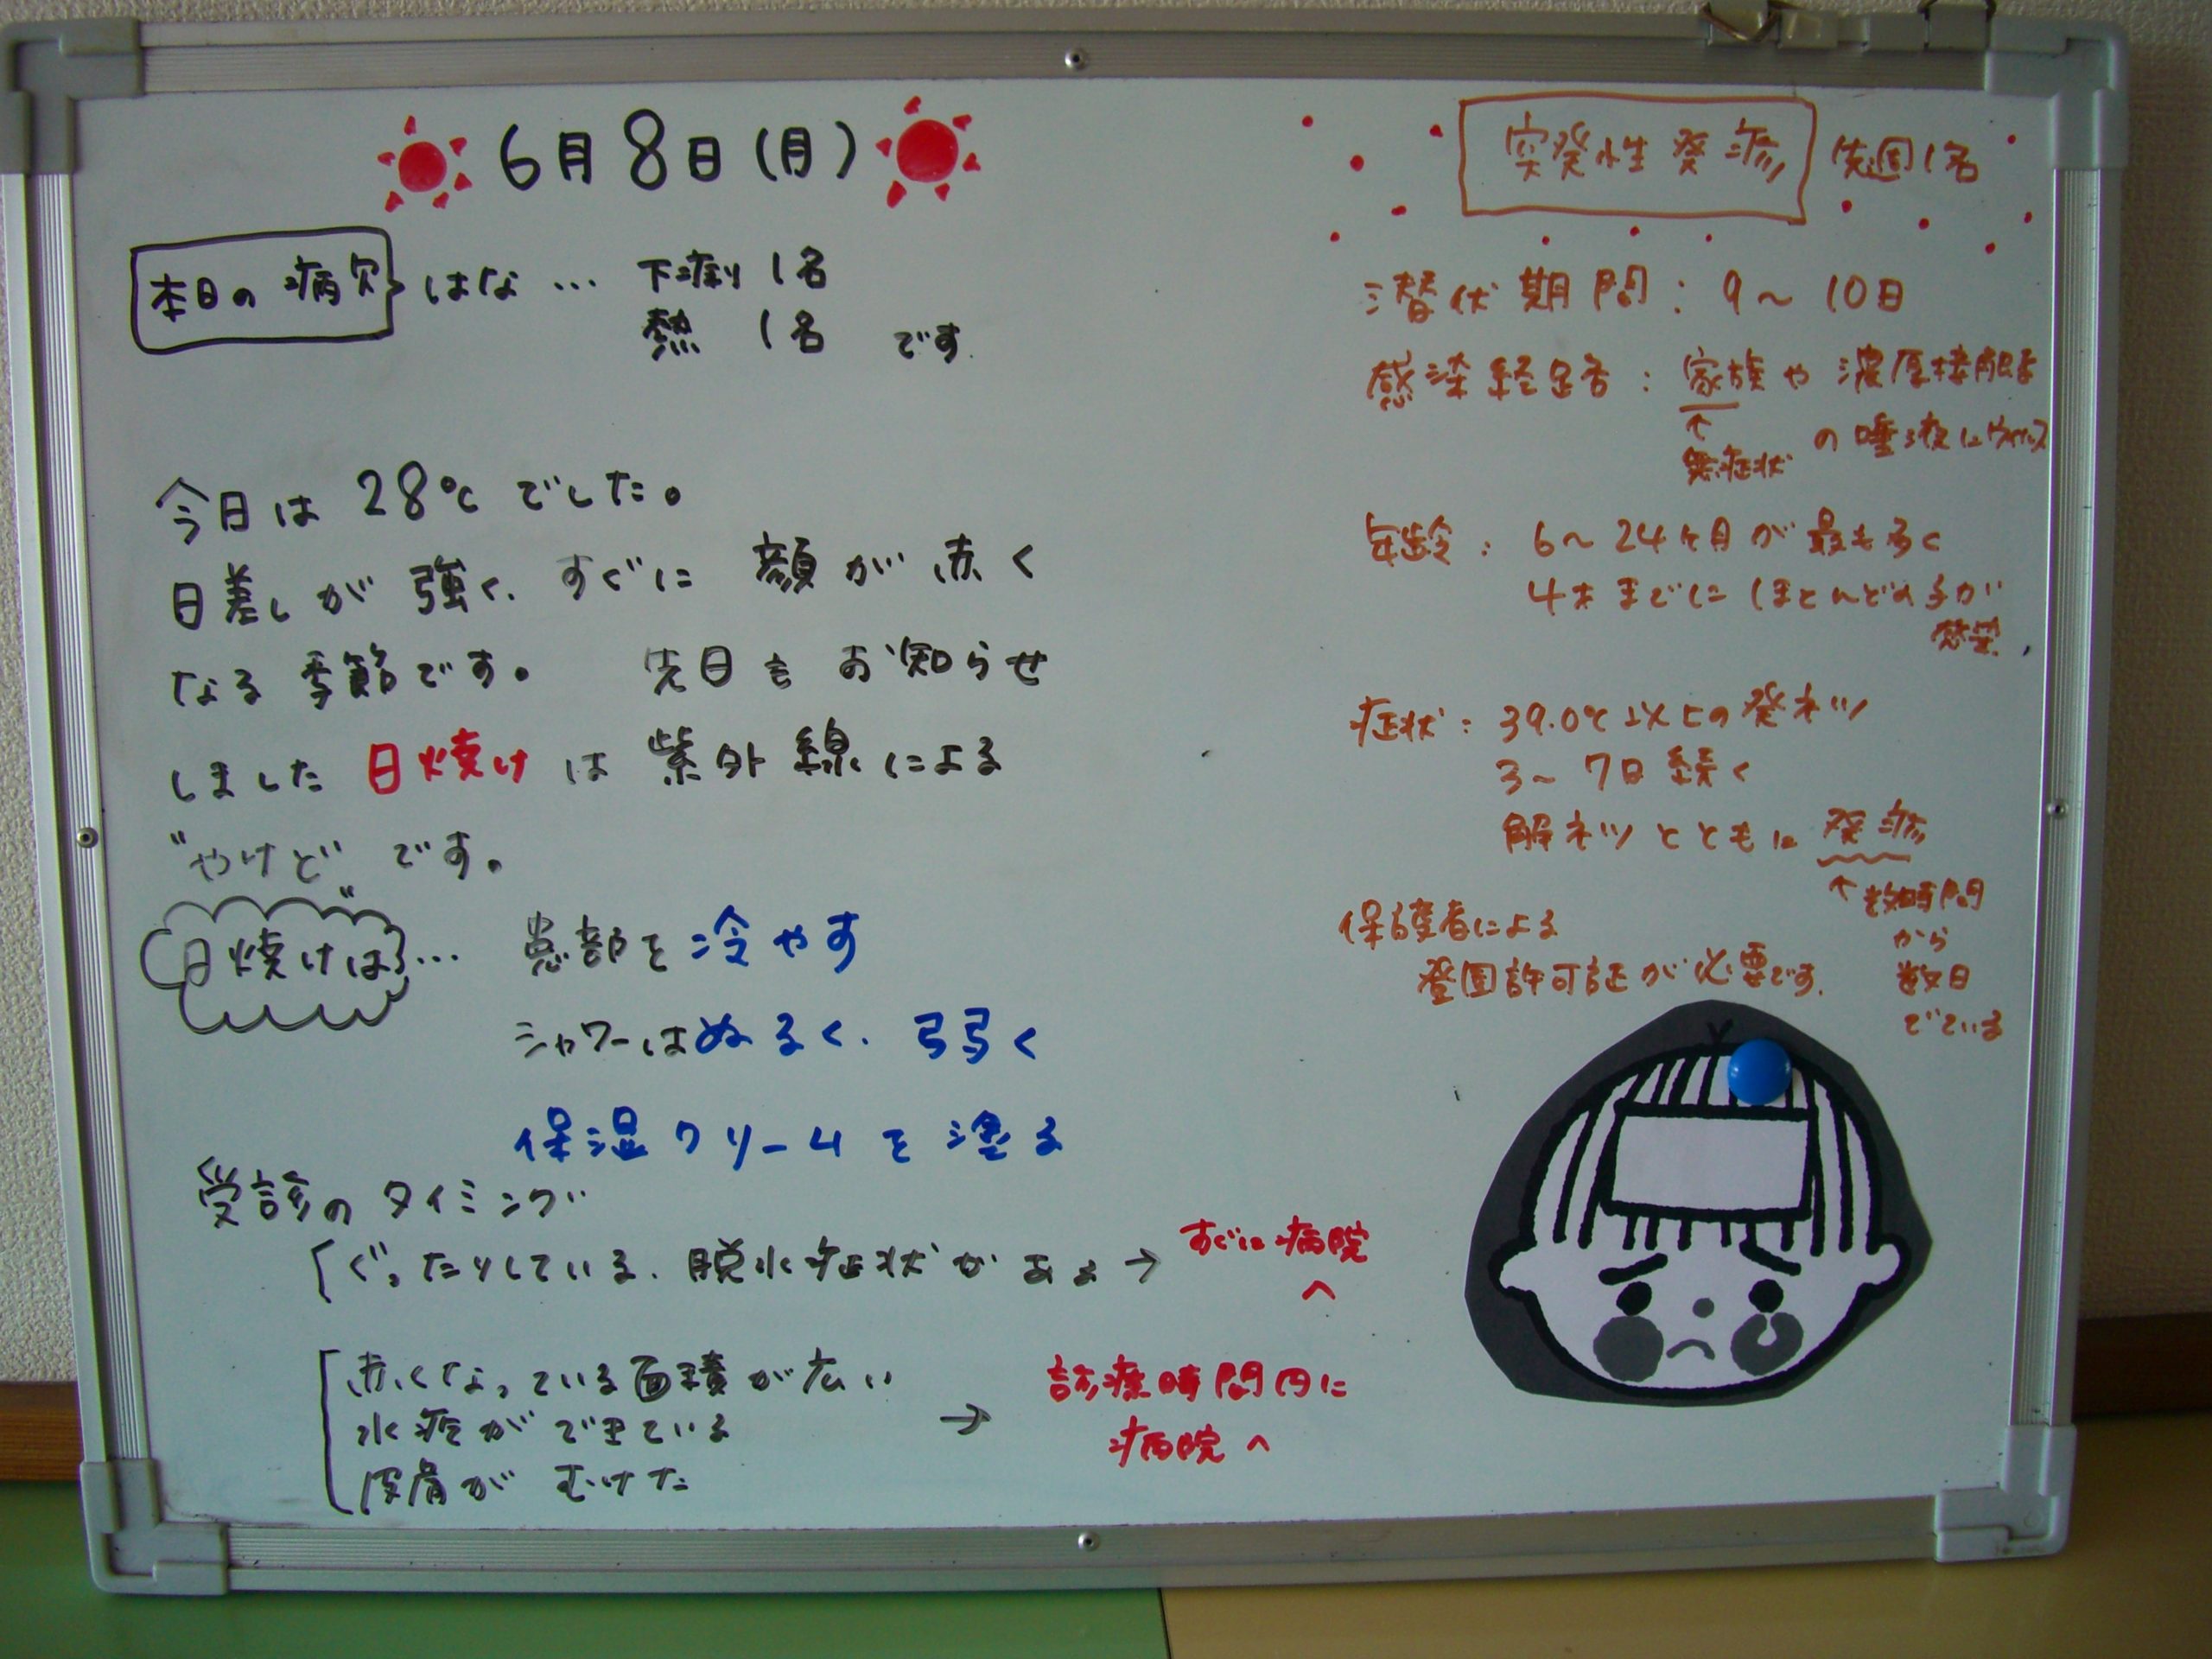 6月8日(月)
本日の病欠 はな… 下痢 1名
熱 1名 です.
今日は 28℃ でした。
日差しが 強く、すぐに 顔が 赤く
なる 季節です。 先日も お知らせ
しました 日焼け は 紫外線による
"やけど" です。
日焼けは… 患部を冷やす
シャワーはぬるく、弱く
保湿クリームを塗る
受診の タイミング
ぐったりしている、脱水症状がある → すぐに病院
へ
赤くなっている面積が広い
水疱ができている → 診療時間内に
病院へ
皮膚が むけた
突発性発疹 先週1名
潜伏期間: 9~10日
感染経路: 家族や濃厚接触者
の唾液にウイルス
↑
無症状
年齢: 6~24ヶ月が最も多く
4才までにほとんどの子が
感染.
症状: 39.0℃以上の発ネツ
3~7日続く
解ネツとともに発疹
↑数時間
から
数日
でている
保護者による
登園許可証が必要です.